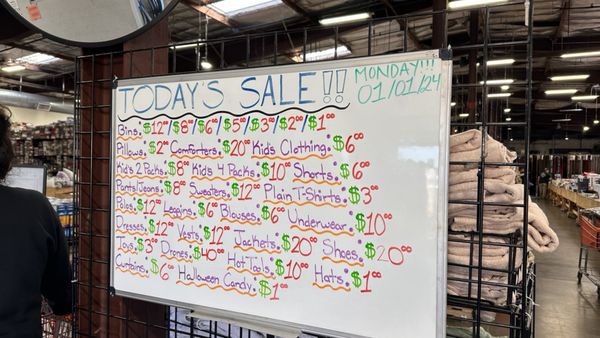 TODAY'S SALE!!
MONDAY!!!
01/01/24
Bins: $12⁰⁰/$8⁰⁰/$6⁰⁰/$5⁰⁰/$3⁰⁰/$2⁰⁰/$1⁰⁰
Pillows: $2⁰⁰ Comforters: $20⁰⁰ Kids Clothing: $6⁰⁰
Kids 2 Packs: $8⁰⁰ Kids 4 Packs: $10⁰⁰ Shorts: $6⁰⁰
Pants/Jeans: $8⁰⁰ Sweaters: $12⁰⁰ Plain T-Shirts: $3⁰⁰
Polos: $12⁰⁰ Leggins: $6⁰⁰ Blouses: $6⁰⁰ Underwear: $10⁰⁰
Dresses: $12⁰⁰ Vests: $12⁰⁰ Jackets: $20⁰⁰ Shoes: $20⁰⁰
Toys: $3⁰⁰ Drones: $40⁰⁰ Hot Tools: $10⁰⁰ Hats: $1⁰⁰
Curtains: $6⁰⁰ Halloween Candy: $1⁰⁰